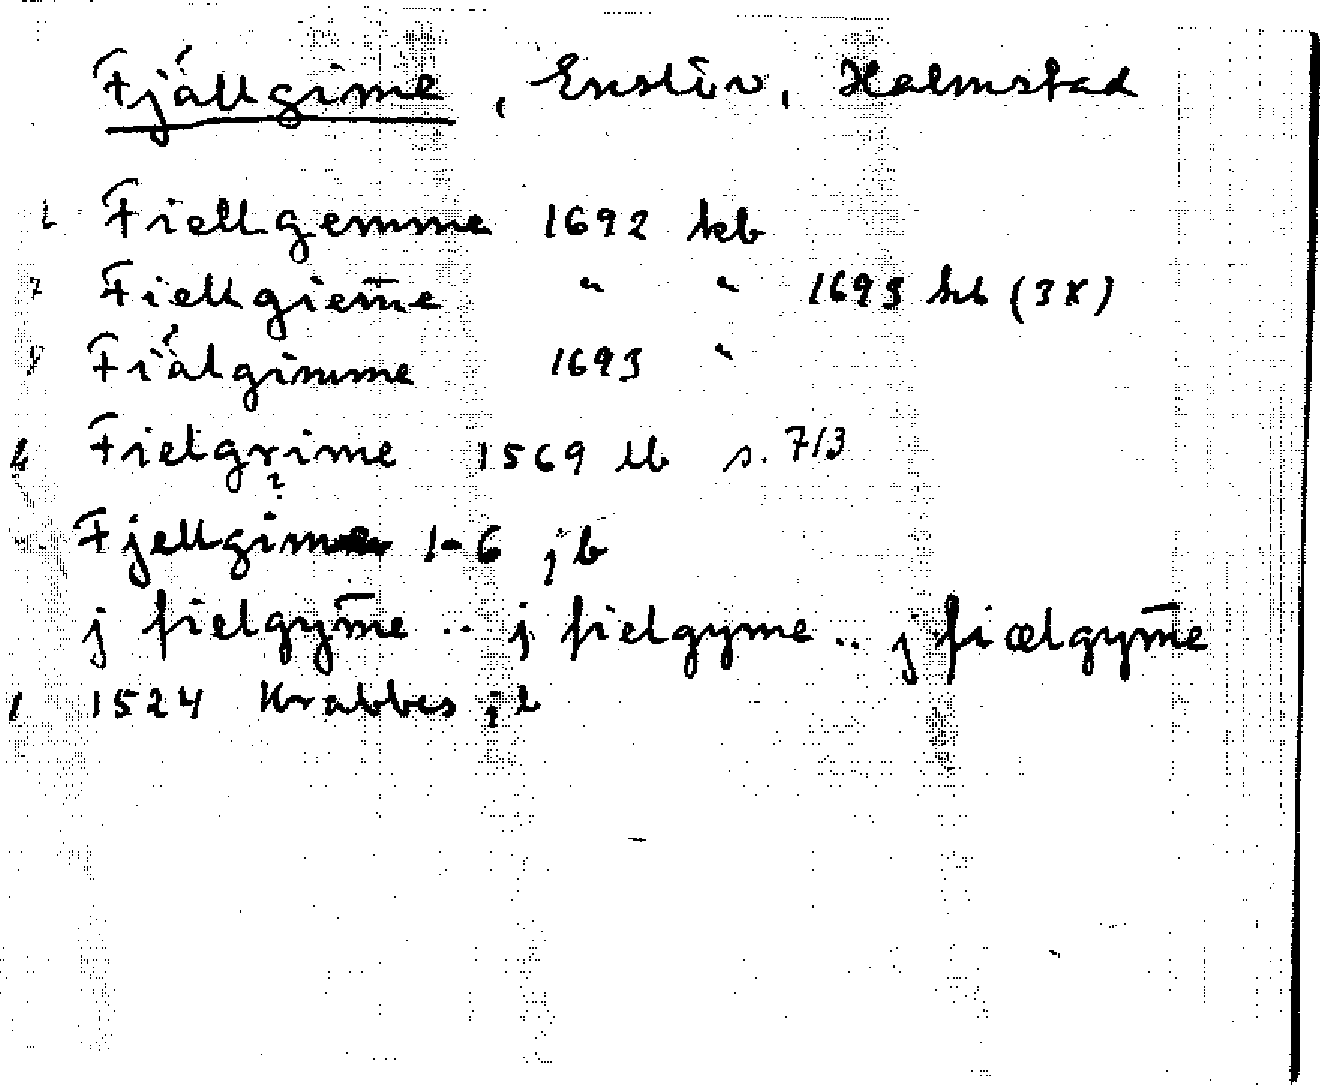 Fjällgime, Enslöv, Halmstad
Fiellgemme 1692 kb
Fiellgiem̄e " " 1693 kb (3X)
Fiälgimme 1693 "
Fielgrime 1569 lb s. 713
?
Fjellgime 1-6 jb
j fielgym̄e .. j fielgyme .. j fiælgym̄e
1 1524 Krabbes jb